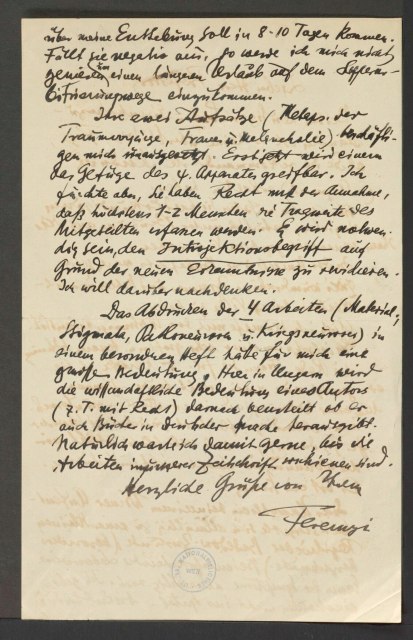 über meine Enthebung soll in 8-10 Tagen kommen.
Fällt sie negativ aus, so werde ich mich nicht
genieren um einen längeren Urlaub auf dem Superar-
bitrierungswege einzukommen.
Ihre zwei Aufsätze (Metaps. der
Traumvorgänge, Trauer u. Melancholie) beschäfti-
gen mich unausgesetzt. Erst jetzt wird einem
das Gefüge des ψ. Apparates greifbar. Ich
fürchte aber, Sie haben Recht mit der Annahme,
daß höchstens 1-2 Menschen die Tragweite des
Mitgeteilten erfassen werden. Es wird notwen-
dig sein, den Introjektionsbegriff auf
Grund der neuen Erkenntnisse zu revidieren.
Ich will darüber nachdenken.
Das Abdrucken der 4 Arbeiten (Material,
Stigmata, Pathoneurosen u. Kriegsneurosen) in
einem besondren Heft hätte für mich eine
große Bedeutung. Hier in Ungarn wird
die wissenschaftliche Bedeutung eines Autors
(z. T. mit Recht) darnach beurteilt ob er
auch Bücher in deutscher Sprache herausgibt.
Natürlich warte ich damit gerne, bis die
Arbeiten in unserer Zeitschrift erschienen sind.
Herzliche Grüße von Ihrem
Ferenczi